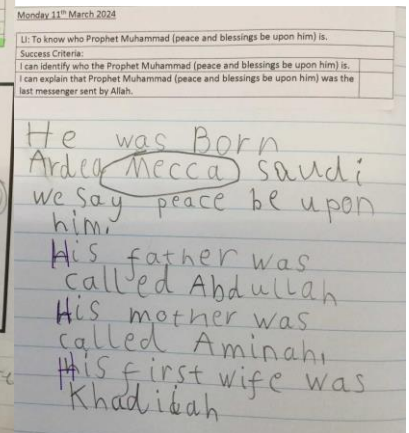 Monday 11th March 2024
LI: To know who Prophet Muhammad (peace and blessings be upon him) is.
Success Criteria:
I can identify who the Prophet Muhammad (peace and blessings be upon him) is.
I can explain that Prophet Muhammad (peace and blessings be upon him) was the
last messenger sent by Allah.
He was Born
Ardea Mecca saudi
we say peace be upon
him.
His father was
called Abdullah
His mother was
called Aminah.
His first wife was
Khadijah